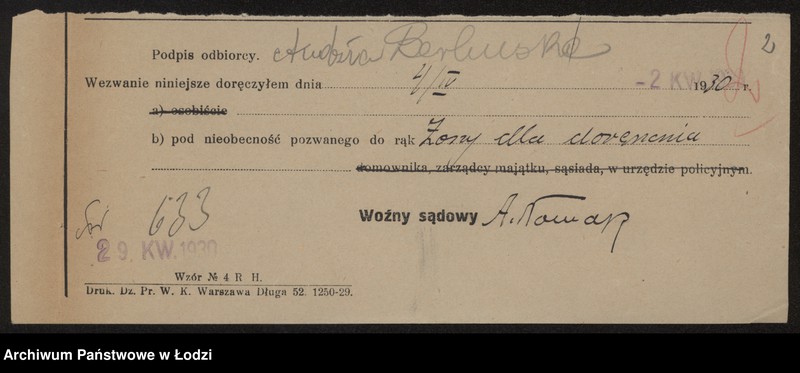 2
Podpis odbiorcy.
Wezwanie niniejsze doręczyłem dnia 4/IV 1930 r.
- 2 KW.
a) osobiście
b) pod nieobecność pozwanego do rąk Żony dla doręczenia
domownika, zarządcy majątku, sąsiada, w urzędzie policyjnym.
633
Woźny sądowy A. Nowak
2 9. KW. 1930
Wzór № 4 R H.
Druk. Dz. Pr. W. K. Warszawa Długa 52. 1250-29.
Archiwum Państwowe w Łodzi